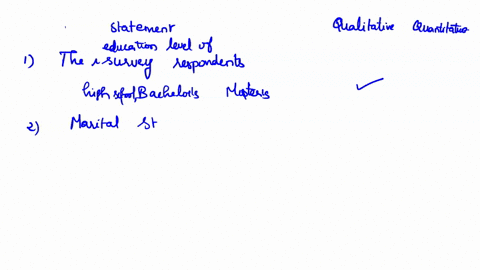 Statement Qualitative Quantitative
education level of
1) The survey respondents
high school, Bachelor's Master's
2) Marital St